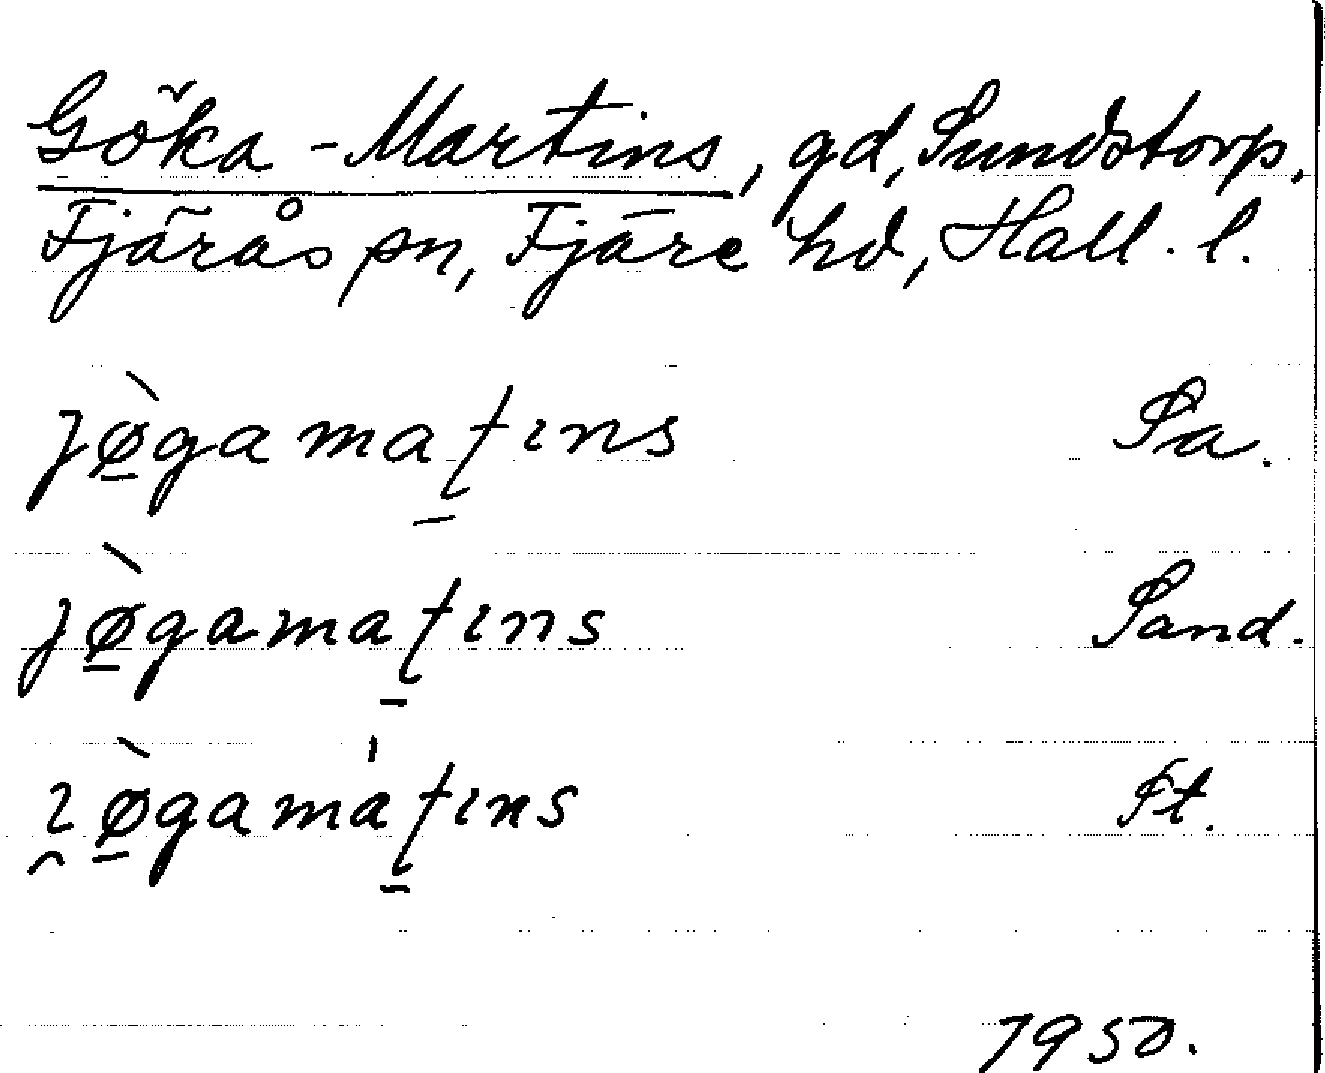 Göka-Martins, gd, Sundstorp,
Fjärås sn, Fjäre hd, Hall. l.
jø̱̀gamaʈ̱ıns Sa.
jø̱̀gamaʈ̱ıns Sand.
ı̯ø̱̀gamáʈ̱ıns Ft.
1950.